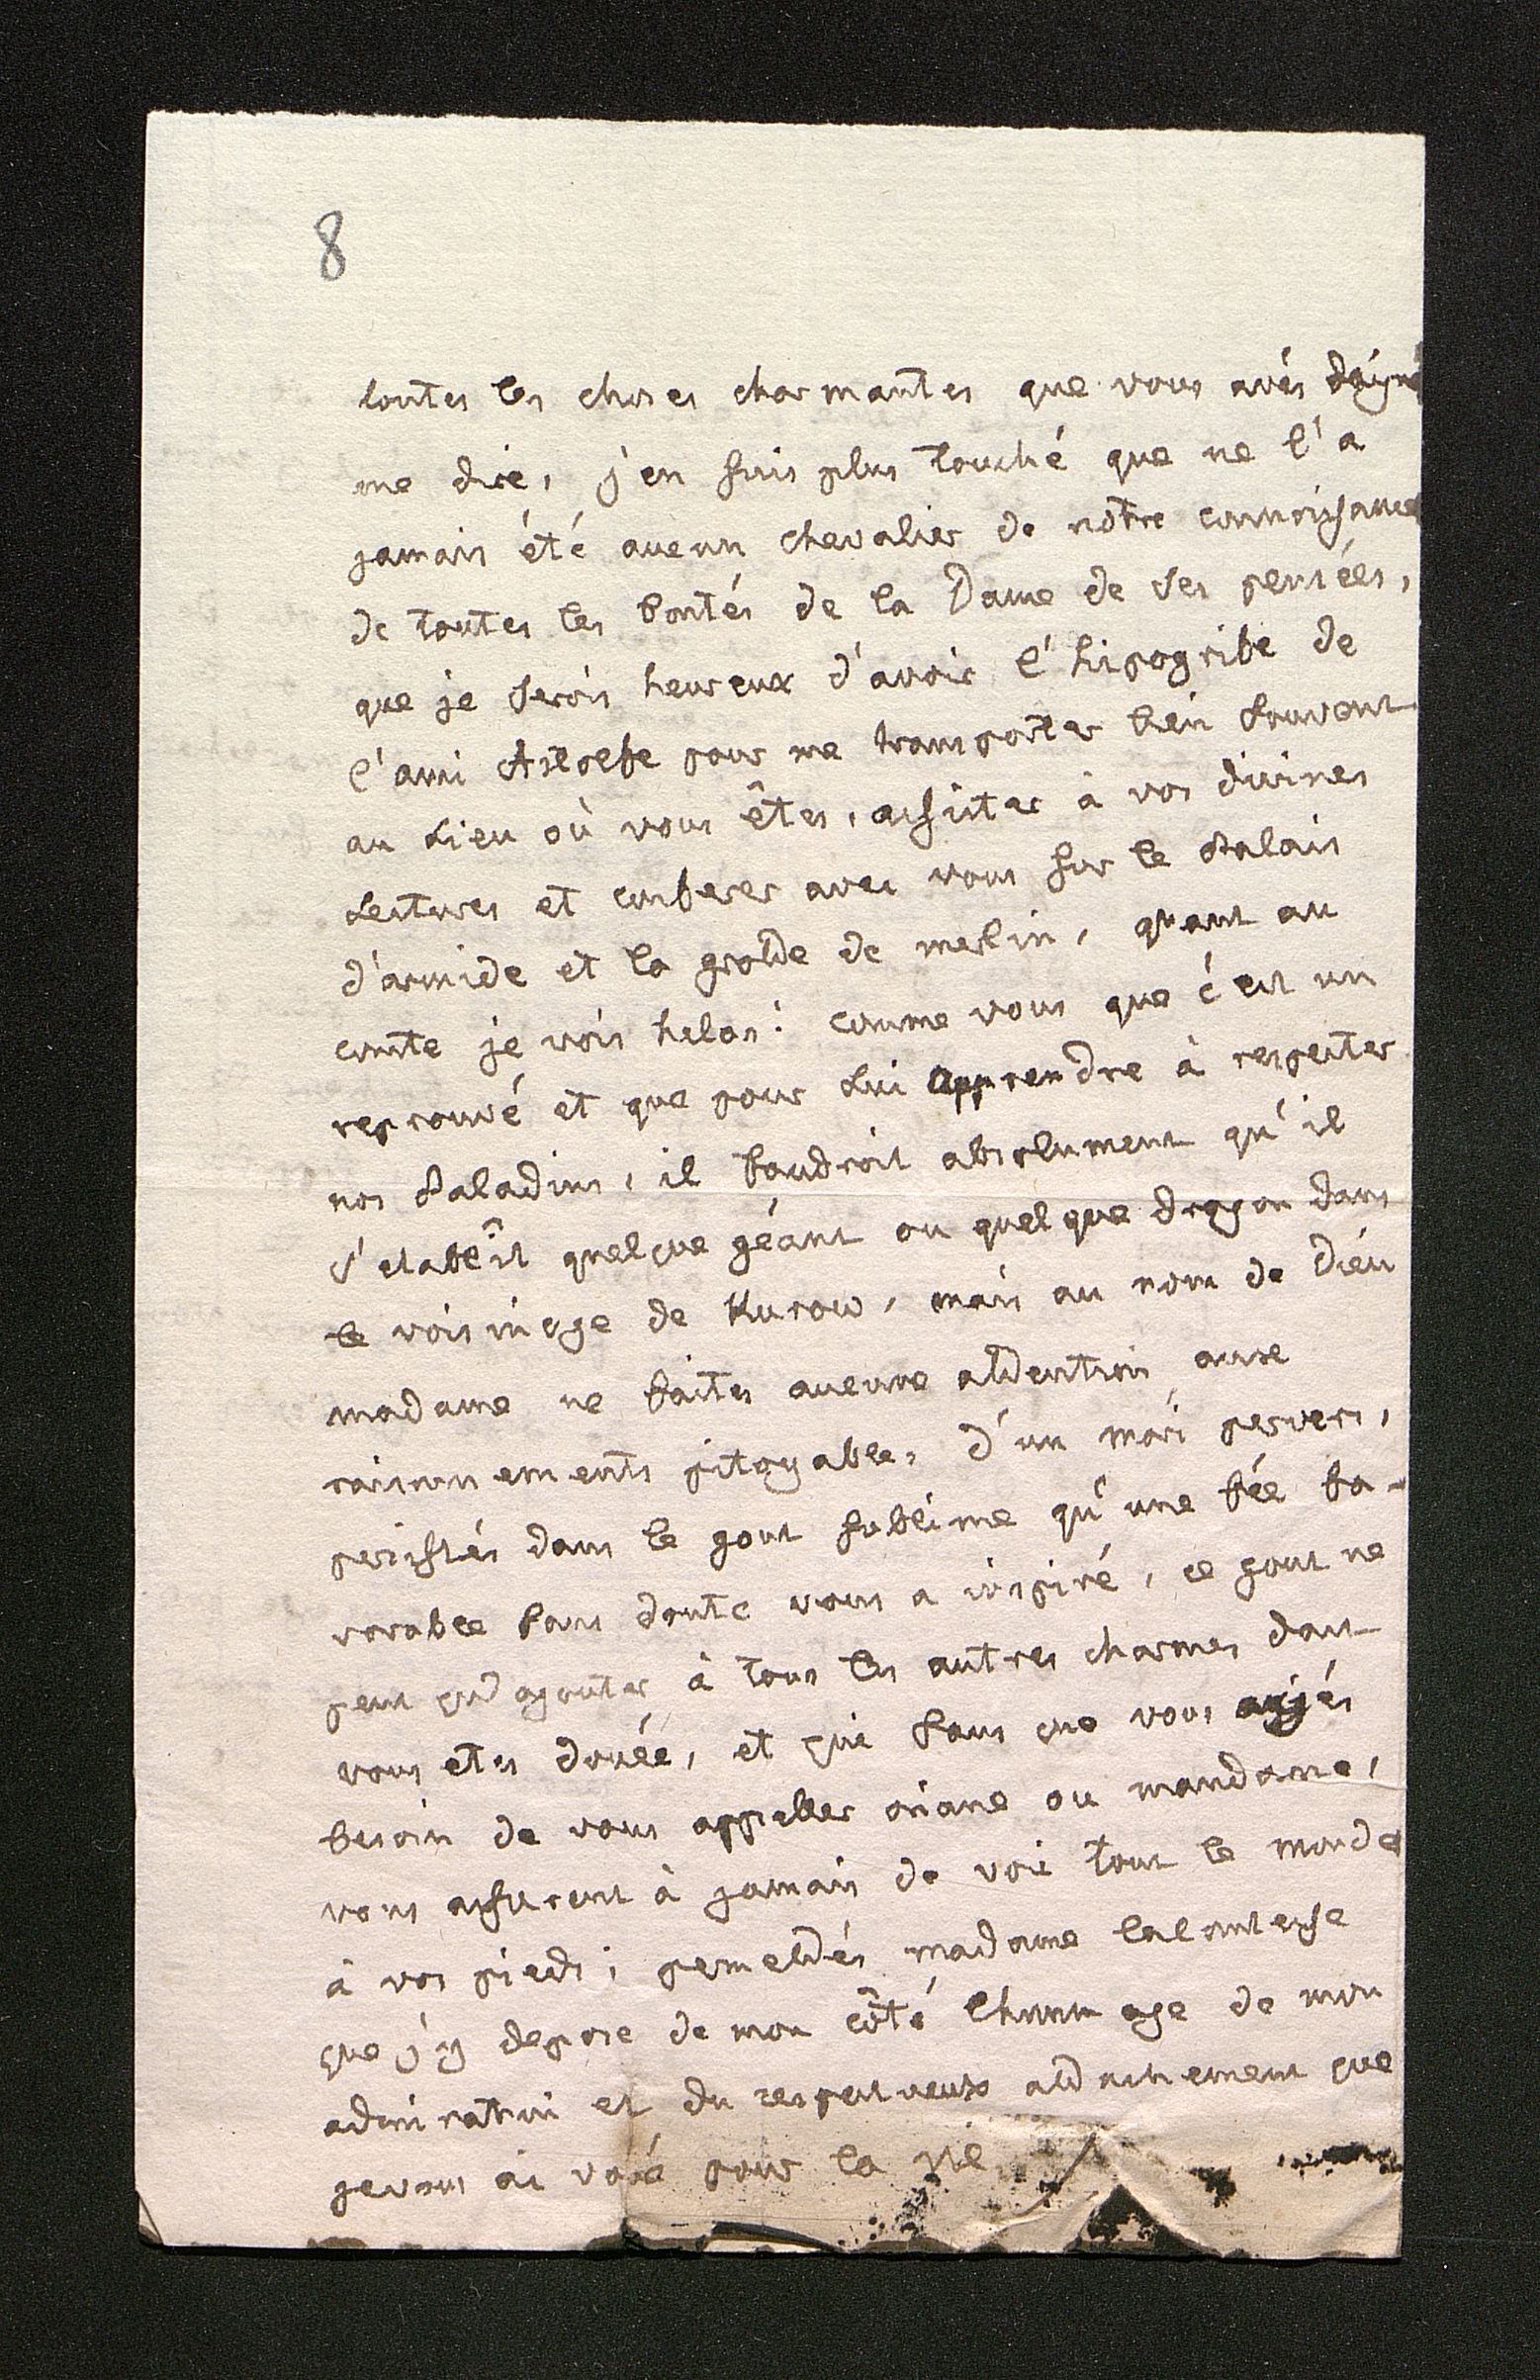 8
toutes les choses charmantes que vous avés daigné
me dire, j'en suis plus touché que ne l'a
jamais été aucun chevalier de nôtre connoissance
de toutes les bontés de la Dame de ses pensées,
que je serois heureux d'avoir l'hipogrife de
l'ami Astolfe pour me transporter bien souvent
au Lieu où vous êtes, assister à vos divines
Lectures et conferer avec vous sur le Palais
d'armide et la grotte de merlin, quant au
comte je vois helas! comme vous que c'est un
reprouvé et que pour Lui apprendre à respecter
nos Paladins, il faudroit absolument qu'il
s'etablît quelque géant ou quelque dragon dans
le voisinage de Kurow, mais au nom de Dieu
madame ne faites aucune attention aux
raisonnements pitoyables d'un mari pervers,
persistés dans le gout sublime qu'une fée fa-
vorable sans doute vous a inspiré, ce gout ne
peut qu'ajouter à tous les autres charmes dont
vous etes douée, et qui sans que vous ayiés
besoin de vous appeller oriane ou mandane,
vous assurent à jamais de voir tout le monde
à vos pieds; permettés madame la comtesse
que j'y depose de mon côté l'hommage de mon
admiration et du respectueux attachement que
je vous ai voué pour la vie